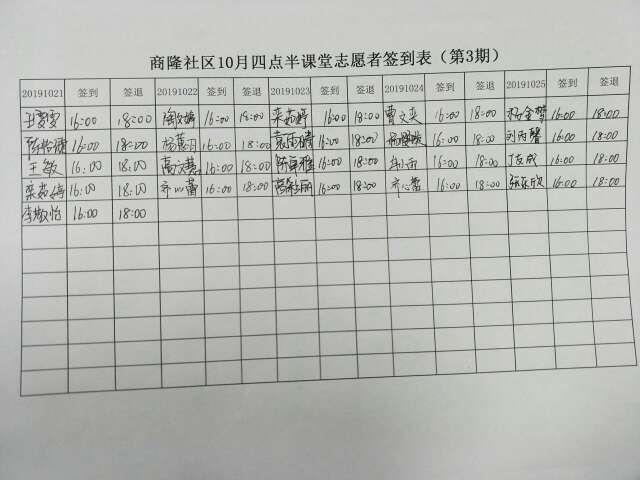 商隆社区10月四点半课堂志愿者签到表（第3期）
20191021 签到 签退 20191022 签到 签退 20191023 签到 签退 20191024 签到 签退 20191025 签到 签退
王雯雯 16:00 18:00 16:00 18:00 栾茹婷 16:00 18:00 曹文奕 16:00 18:00 16:00 18:00
16:00 18:00 16:00 18:00 袁雨晴 16:00 18:00 16:00 18:00 刘丙馨 16:00 18:00
王敏 16:00 18:00 高文慧 16:00 18:00 16:00 18:00 16:00 18:00 16:00 18:00
栾茹婷 16:00 18:00 齐心蕾 16:00 18:00 16:00 18:00 齐心蕾 16:00 18:00 16:00 18:00
李敬怡 16:00 18:00